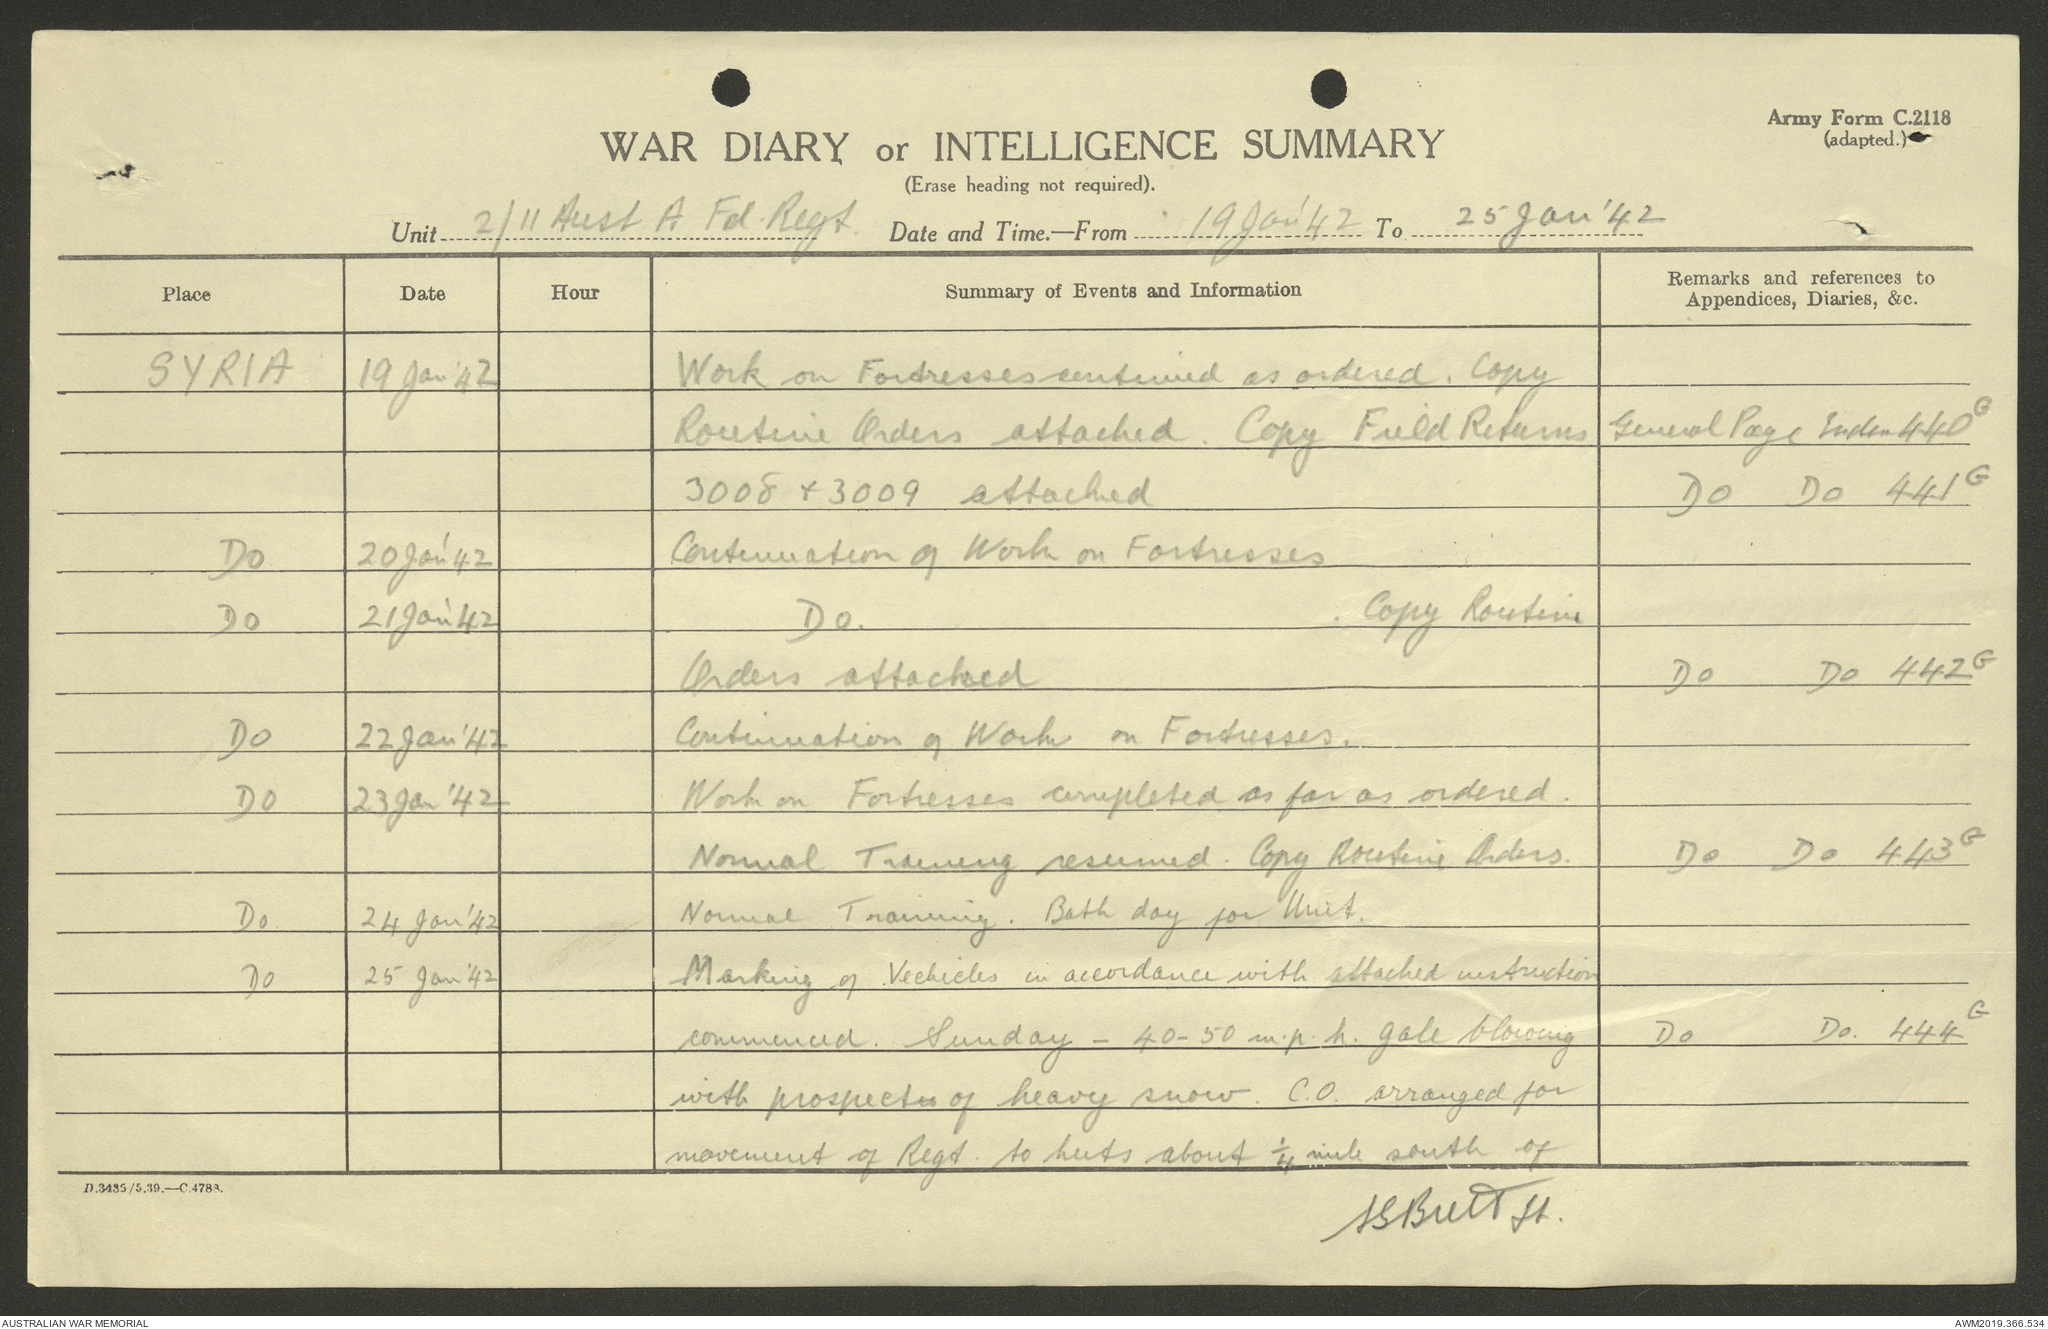 Army Form C.2118
(adapted.)
WAR DIARY or INTELLIGENCE SUMMARY
(Erase heading not required).
Unit 2/11 Aust A Fd. Regt. Date and Time.—From 19 Jan '42 To 25 Jan '42
Place Date Hour Summary of Events and Information Remarks and references to
Appendices, Diaries, &c.
SYRIA 19 Jan '42 Work on Fortresses continued as ordered. Copy
Routine Orders attached. Copy Field Returns General Page Index 440G
3008 + 3009 attached Do Do 441G
Do 20 Jan '42 Continuation of Work on Fortresses
Do 21 Jan '42 Do. . Copy Routine
Orders attached Do Do 442G
Do 22 Jan '42 Continuation of Work on Fortresses.
Do 23 Jan '42 Work on Fortresses completed as far as ordered.
Normal Training resumed. Copy Routine Orders. Do Do 443G
Do. 24 Jan '42 Normal Training. Bath day for Unit.
Do 25 Jan '42 Marking of Vechicles in accordance with attached instruction
commenced. Sunday - 40-50 m.p.h. gale blowing Do Do. 444G
with prospects of heavy snow. C.O. arranged for
movement of Regt. to huts about 1/4 mile south of
D.3435/5.39.—C.4788.
Lt.
AUSTRALIAN WAR MEMORIAL
AWM2019.366.534